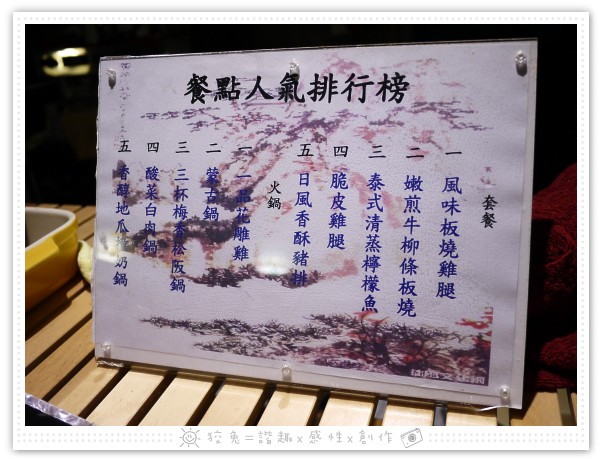 餐點人氣排行榜
套餐
一 風味板燒雞腿
二 嫩煎牛柳條板燒
三 泰式清蒸檸檬魚
四 脆皮雞腿
五 日風香酥豬排
火鍋
一 一品花雕雞
二 蒙古鍋
三 三杯梅香松阪鍋
四 酸菜白肉鍋
五 香醇地瓜鮮奶鍋
狡兔=諧趣x感性x創作